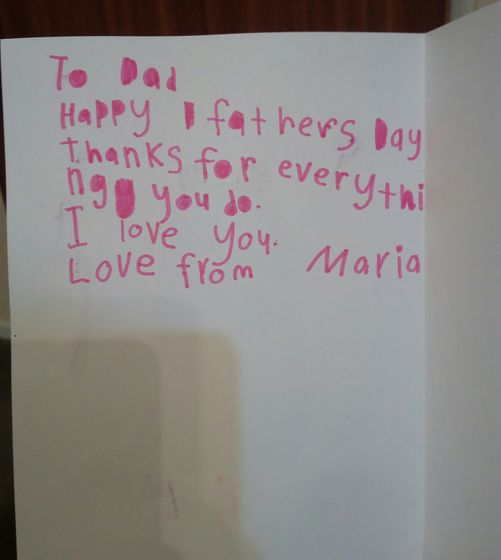 To Dad
Happy fathers Day
thanks for everythi
ng you do.
I love you.
Love from Maria